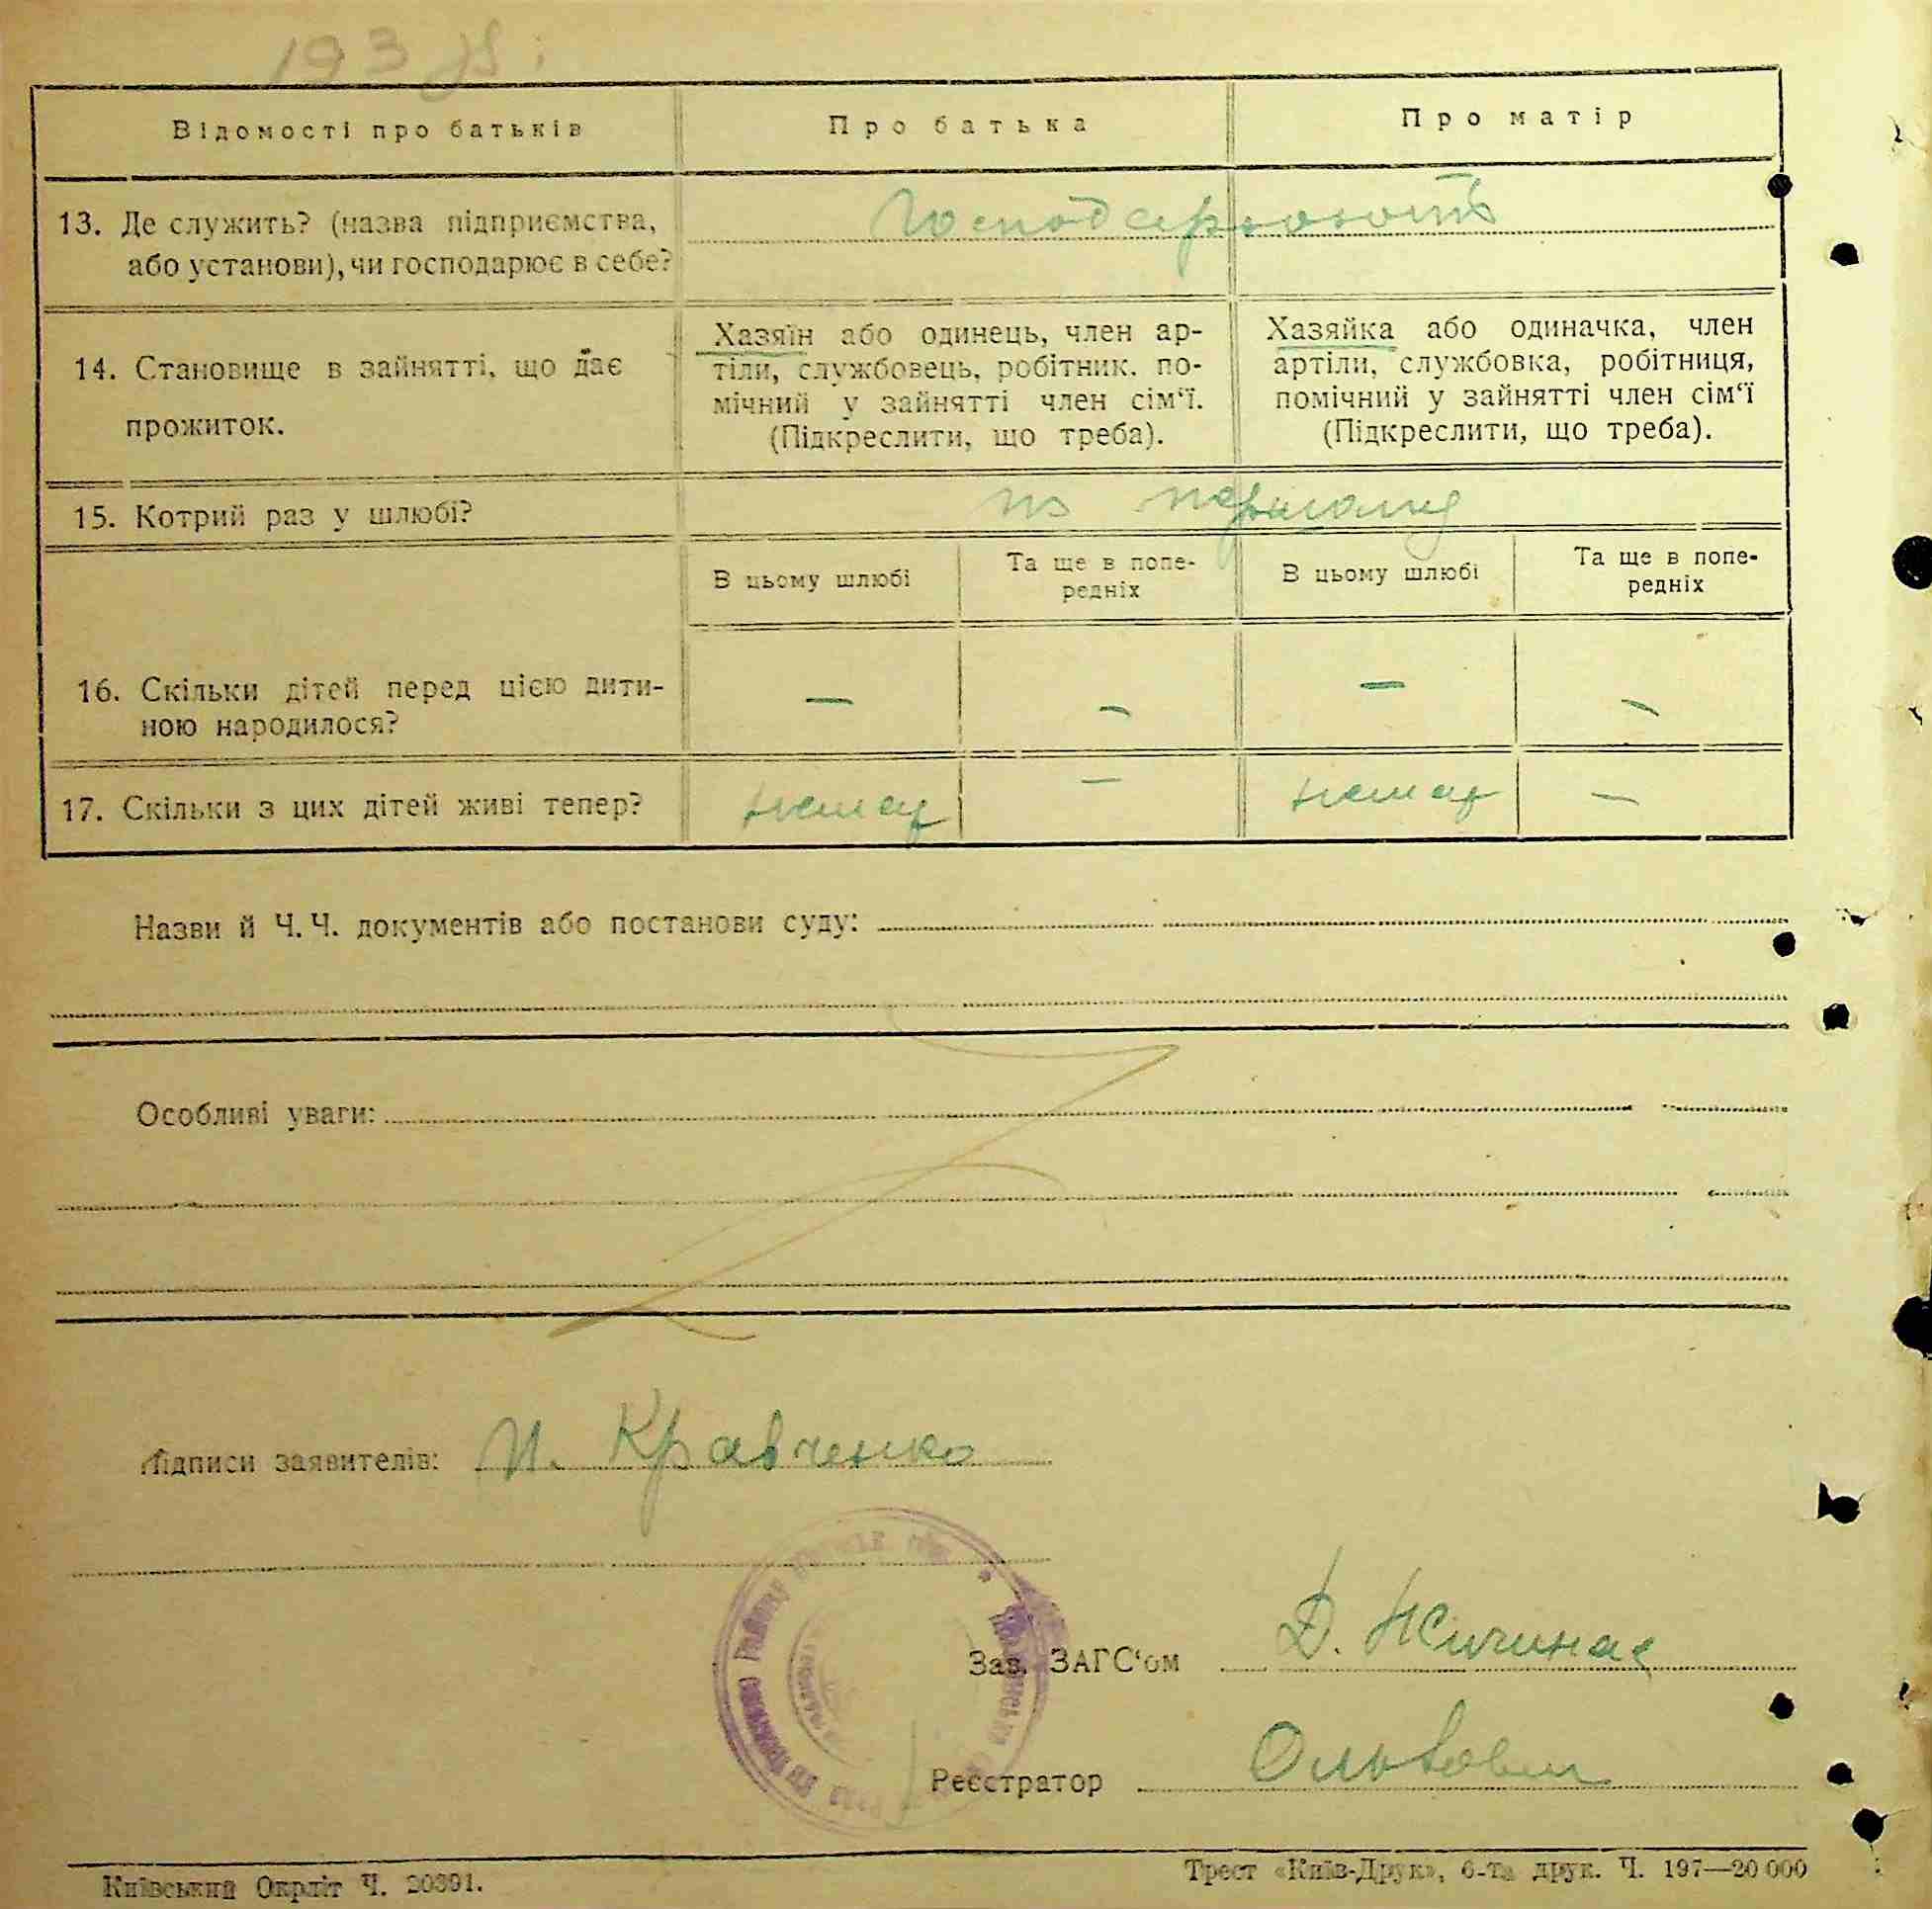 193
Відомості про батьків
Про батька
Про матір
13. Де служить? (назва підприємства,
або установи), чи господарює в себе?
14. Становище в зайнятті, що дає
прожиток.
Хазяїн або одинець, член ар-
тіли, службовець, робітник. по-
мічний у зайнятті член сім‘ї.
(Підкреслити, що треба).
Хазяйка або одиначка, член
артіли, службовка, робітниця,
помічний у зайнятті член сім‘ї
(Підкреслити, що треба).
15. Котрий раз у шлюбі?
по першому
В цьому шлюбі
Та ще в попе-
редніх
В цьому шлюбі
Та ще в попе-
редніх
16. Скільки дітей перед цією дити-
ною народилося?
— — — —
17. Скільки з цих дітей живі тепер?
немає — немає —
Назви й Ч. Ч. документів або постанови суду:
Особливі уваги:
Підписи заявителів: И. Кравченко
Зав. ЗАГС‘ом Д.
Реєстратор
Київський Окрліт Ч. 20391.
Трест «Київ-Друк», 6-та друк. Ч. 197—20 000